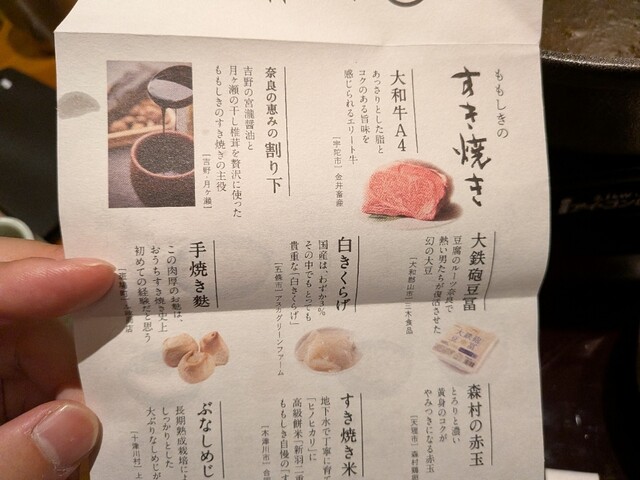 ももしきの
すき焼き
大和牛A4
あっさりとした脂と
コクのある旨味を
感じられるエリート牛
[宇陀市] 金井畜産
奈良の恵みの割り下
吉野の宮瀧醤油と
月ヶ瀬の干し椎茸を贅沢に使った
ももしきのすき焼きの主役
[吉野・月ヶ瀬]
大鉄砲豆冨
豆腐のルーツ奈良で
熱い男たちが復活させた
幻の大豆
[大和郡山市] 三木食品
白きくらげ
国産は、わずか4%
その中でもとっても
貴重な「白きくらげ」
[五條市] アスカグリーンファーム
手焼き麩
この肉厚のお麩は、
おうちすき焼き史上
初めての経験だと思う
森村の赤玉
とろりと濃い
黄身のコクが
やみつきになる赤玉
[天理市] 森村鶏
すき焼き米
地下水で丁寧に育て
「ヒノヒカリ」に
高級餅米「新羽二重
ももしき自慢の「す
[木津川市]
ぶなしめじ
長期熟成栽培によ
しっかりとした
大ぶりなしめじが
[十津川村] 上